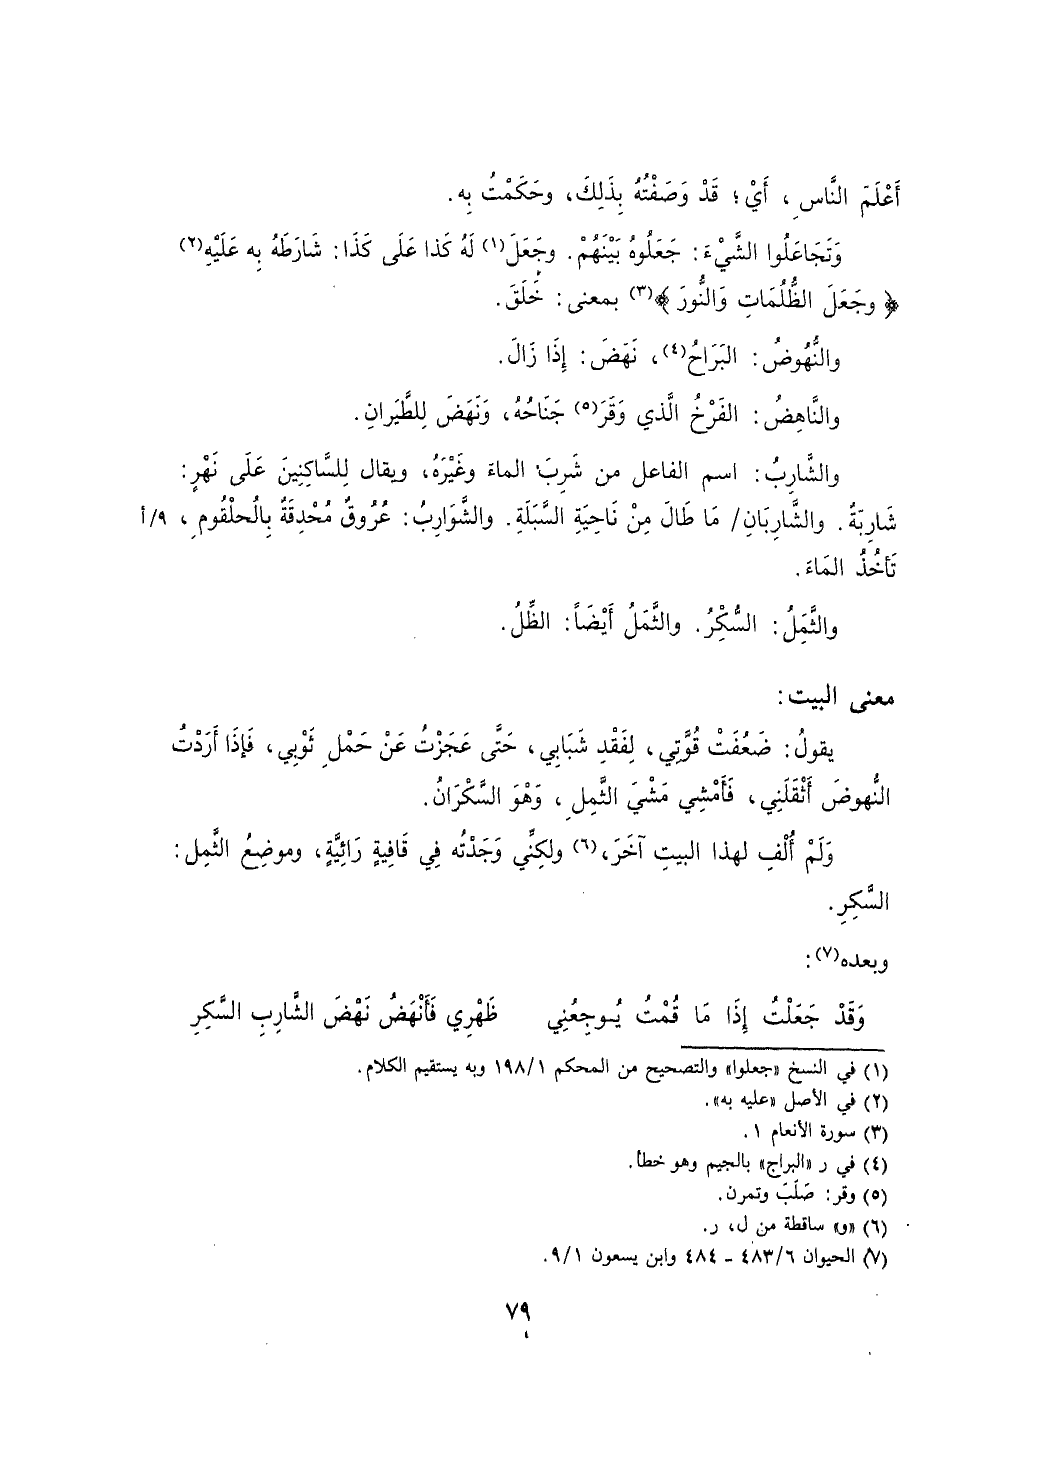 أَعْلَمَ النَّاسِ، أَيْ؛ قَدْ وَصَفْتُهُ بِذَلِكَ، وحَكَمْتُ بِه.
وَتَجَاعَلُوا الشَّيْءَ: جَعَلُوهُ بَيْنَهُمْ. وجَعَلَ(١) لَهُ كَذا عَلَى كَذَا: شَارَطَهُ بِه عَلَيْهِ(٢)
﴿وجَعَلَ الظُّلُمَاتِ وَالنُّورَ﴾(٣) بمعنى: خَلَقَ.
والنُّهُوضُ: البَرَاحُ(٤)، نَهَضَ: إِذَا زَالَ.
والنَّاهِضُ: الفَرْخُ الَّذي وَقَرَ(٥) جَنَاحُهُ، وَنَهَضَ لِلطَّيَرانِ.
والشَّارِبُ: اسم الفاعل من شَرِبَ الماءَ وغَيْرَهُ، ويقال لِلسَّاكِنِينَ عَلَى نَهْرٍ:
شَارِبَةٌ. والشَّارِبَانِ/ مَا طَالَ مِنْ نَاحِيَةِ السَّبَلَةِ. والشَّوَارِبُ: عُرُوقٌ مُحْدِقَةٌ بِالْحلْقُومِ، ٩/أ
تَأخُذُ المَاءَ.
والثَّمَلُ: السُّكْرُ. والثَّمَلُ أَيْضَاً: الظِّلُ.
معنى البيت:
يقولُ: ضَعُفَتْ قُوَّتِي، لِفَقْدِ شَبَابِي، حَتَّى عَجَزْتُ عَنْ حَمْلِ ثَوْبِي، فَإِذَا أَرَدْتُ
النُّهوضَ أَثْقَلَنِي، فَأَمْشِي مَشْيَ الثَّمِلِ، وَهْوَ السَّكْرَانُ.
وَلَمْ أُلْفِ لهذا البيتِ آخَرَ،(٦) ولكِنِّي وَجَدْتُه فِي قَافِيةٍ رَائِيَّةٍ، وموضِعُ الثَّمِل:
السَّكِرِ.
وبعده(٧):
وَقَدْ جَعَلْتُ إِذَا مَا قُمْتُ يُـوجِعُنِي ظَهْرِي فَأَنْهَضُ نَهْضَ الشَّارِبِ السَّكِرِ
(١) في النسخ «جعلوا» والتصحيح من المحكم ١٩٨/١ وبه يستقيم الكلام.
(٢) في الأصل «عليه به».
(٣) سورة الأنعام ١.
(٤) في ر «البراج» بالجيم وهو خطأ.
(٥) وقر: صَلَبَ وتمرن.
(٦) «و» ساقطة من ل، ر.
(٧) الحيوان ٤٨٣/٦ – ٤٨٤ وابن يسعون ٩/١.
٧٩